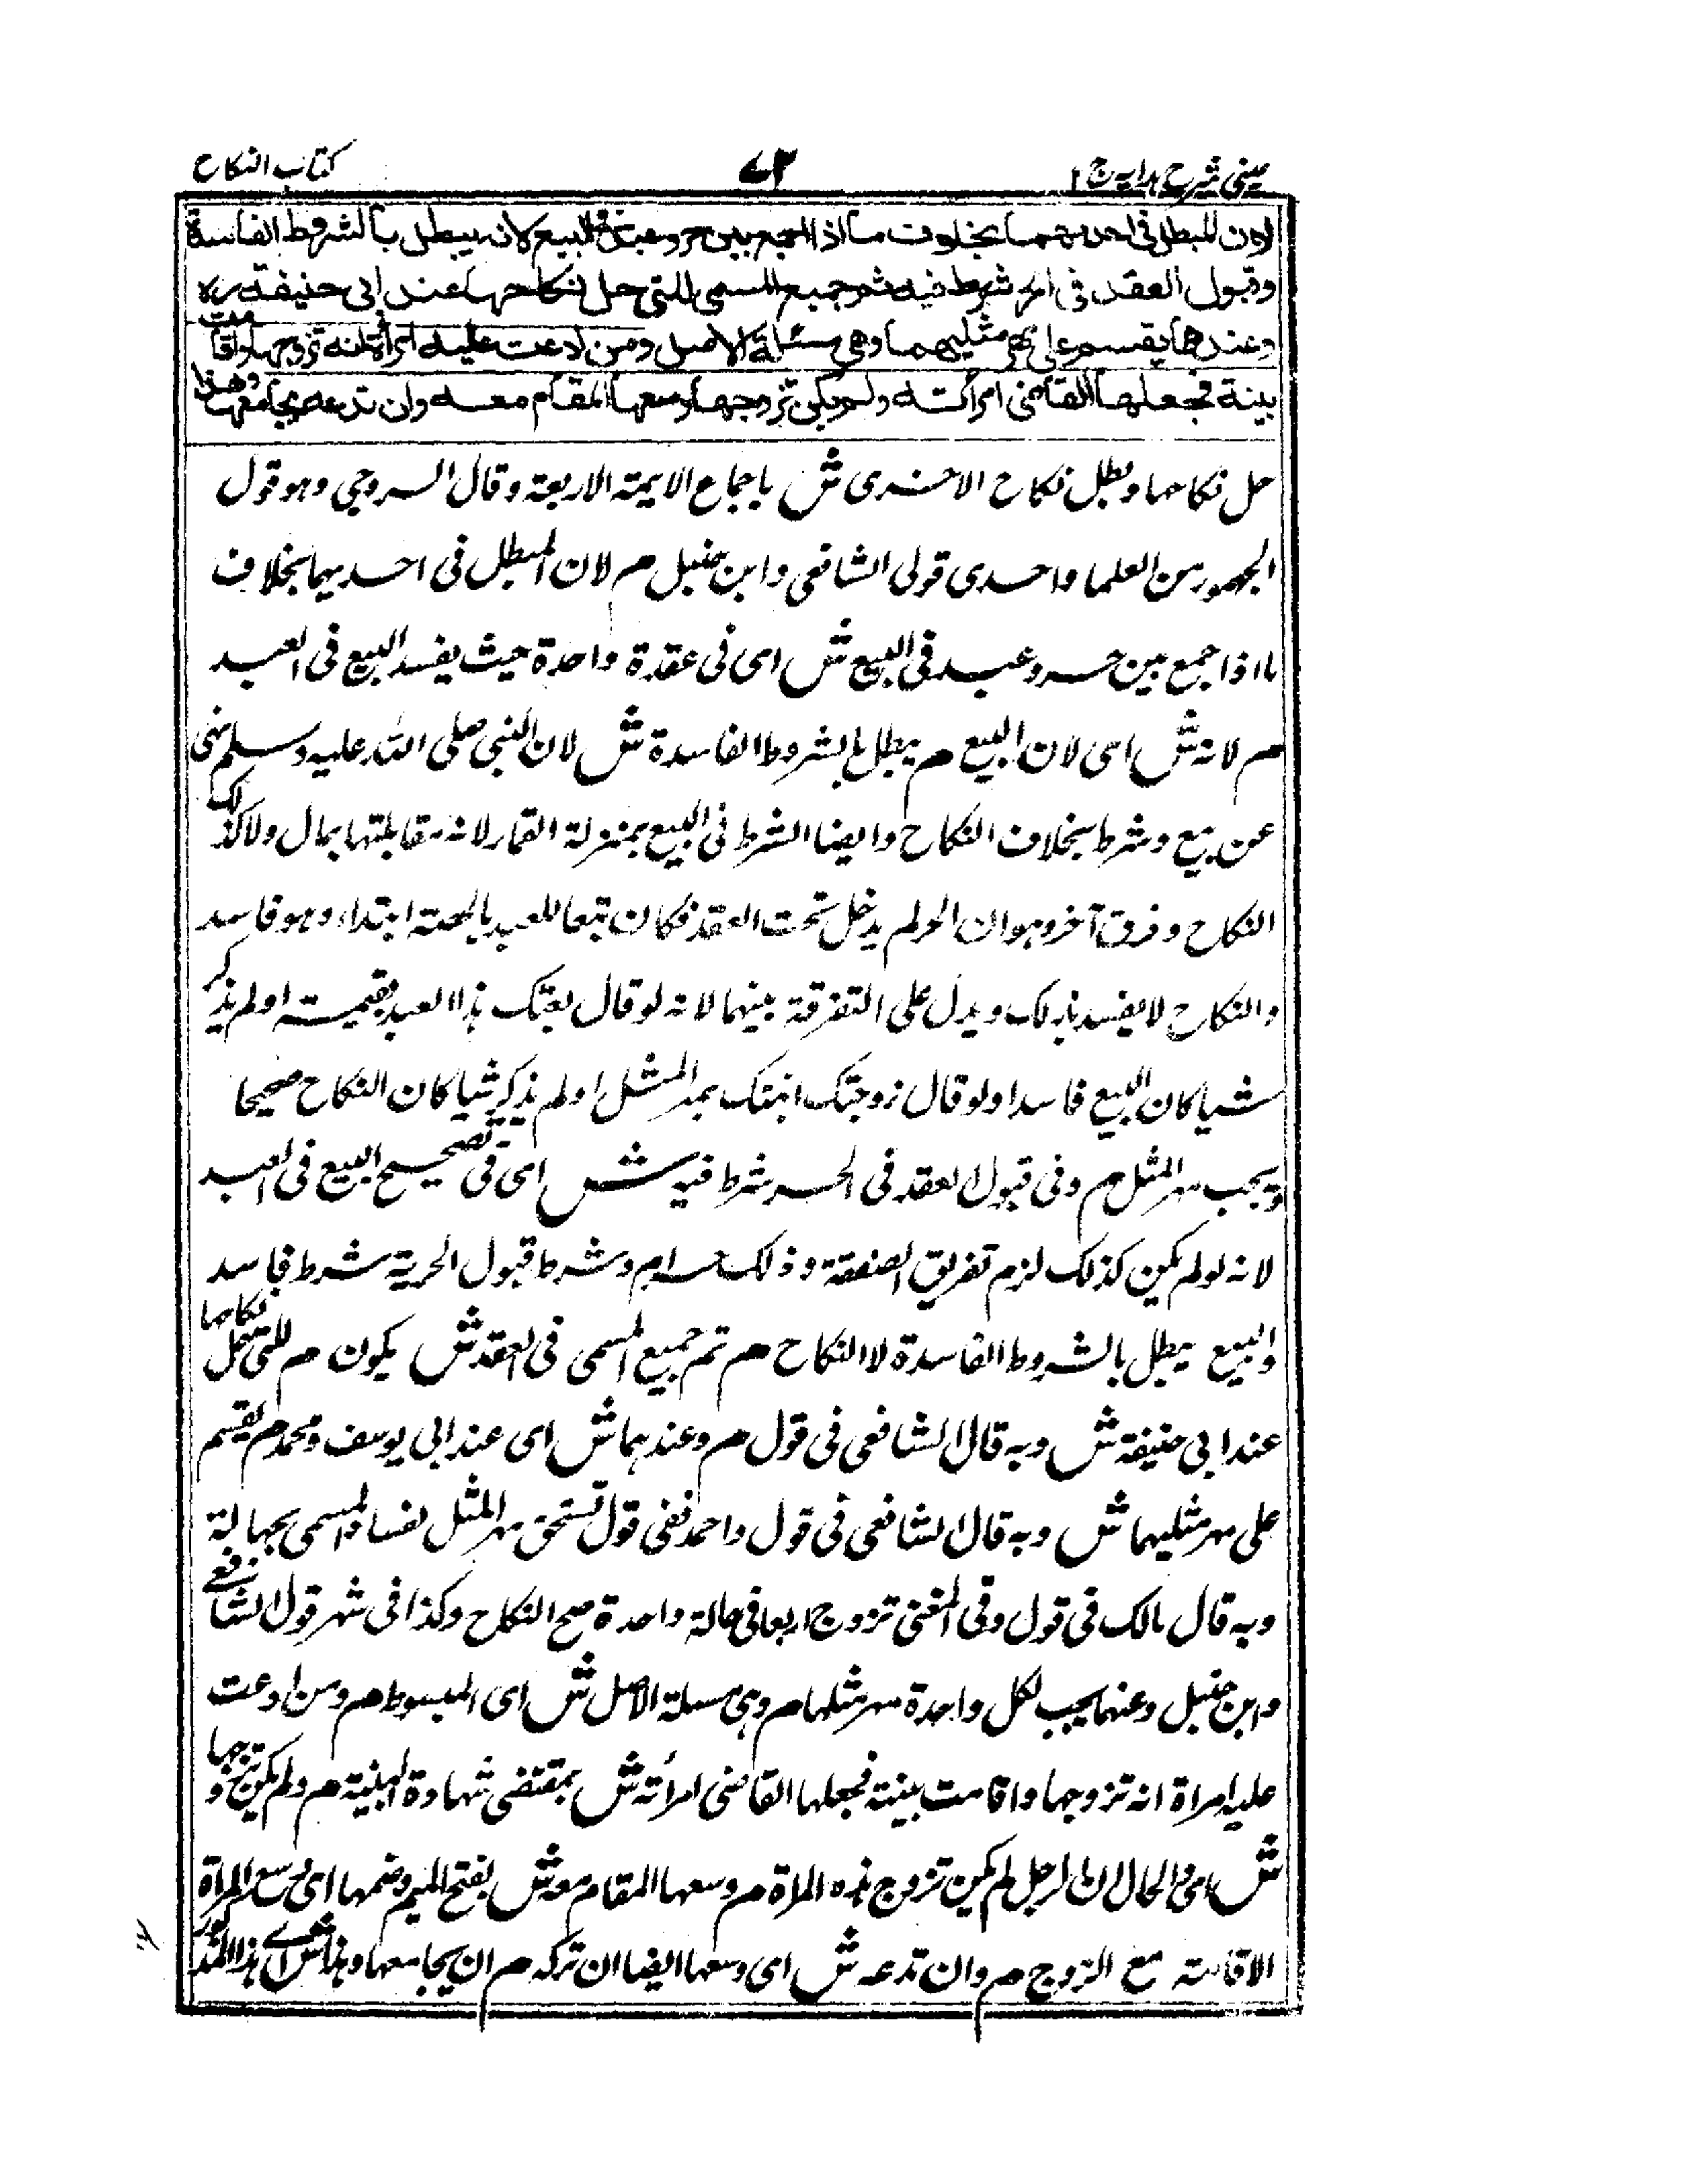 عینی شرح ہدایہ ج ۲ ۷۲ کتاب النکاح
لان المبطل فی احدیهما بخلاف ما اذا جمع بین حر وعبد فی البیع لانه یبطل بالشروط الفاسدة
وقبول العقد فی الحر شرط فیه ثم جمیع المسمی للتی حل نکاحها عند ابی حنیفة رح
وعندهما یقسم علی مهر مثلیهما وهی مسئلة الاصل ومن ادعت علیه امرأة انه تزوجها واقامت
بینة فجعلها القاضی امرأته ولم یکن تزوجها وسعها المقام معه وان تدعه یجامعها وهذا
حل نکاحها وبطل نکاح الاخری ش باجماع الایمة الاربعة وقال السروجی وهو قول
الجمهور من العلما واحدی قولی الشافعی وابن حنبل م لان المبطل فی احدیهما بخلاف
ما اذا جمع بین حر وعبد فی البیع ش ای فی عقدة واحدة حیث یفسد البیع فی العبد
م لانه ش ای لان البیع م یبطل بالشروط الفاسدة ش لان النبی صلی الله علیه وسلم نهی
عن بیع وشرط بخلاف النکاح وایضا الشرط فی البیع بمنزلة القمار لانه مقابلتها بمال ولا کذلک
النکاح وفرق آخر وهو ان الحر لم یدخل تحت العقد فکان تبعا للعبد بالحصة ابتداء وهو فاسد
والنکاح لا یفسد بذلک ویدل علی التفرقة بینهما لانه لو قال بعتک هذا العبد بقیمته او لم یذکر
شیا کان البیع فاسدا ولو قال زوجتک ابنتک بمهر المثل او لم یذکر شیا کان النکاح صحیحا
ویجب مهر المثل م وفی قبول العقد فی الحر شرط فیه ش ای فی تصحیح البیع فی العبد
لانه لو لم یکن کذلک لزم تفریق الصفقة وذلک حرام وشرط قبول الحریة شرط فاسد
والبیع یبطل بالشروط الفاسدة لا النکاح م ثم جمیع المسمی فی العقد ش یکون م للتی حل نکاحها
عند ابی حنیفة ش وبه قال الشافعی فی قول م وعندهما ش ای عند ابی یوسف ومحمد م یقسم
علی مهر مثلیهما ش وبه قال الشافعی فی قول واحمد ففی قول تستحق مهر المثل لفساد المسمی بجهالة
وبه قال مالک فی قول وفی المغنی تزوج اربعا فی حالة واحدة صح النکاح وکذا فی شهر قول الشافعی
وابن حنبل وعنهما یجب لکل واحدة مهر مثلها م وهی مسئلة الاصل ش ای المبسوط م ومن ادعت
علیه امراة انه تزوجها واقامت بینة فجعلها القاضی امرأته ش بمقتضی شهادة البینة م ولم یکن تزوجها
ش ای والحال ان الرجل لم یکن تزوج هذه المراة م وسعها المقام معه ش بفتح المیم وضمها ای وسع المراة
الاقامة مع الزوج م وان تدعه ش ای وسعها ایضا ان ترکه م ان یجامعها وهذا ش ای هذا المذکور